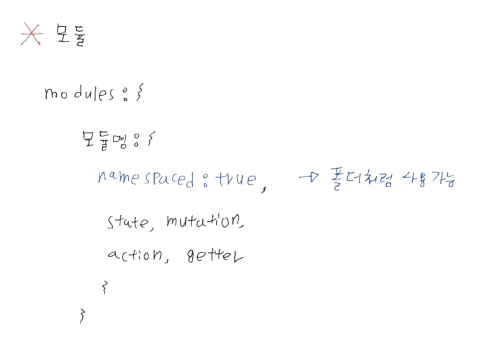 * 모듈
modules : {
모듈명 : {
namespaced : true, → 폴더처럼 사용가능
state, mutation,
action, getter
}
}